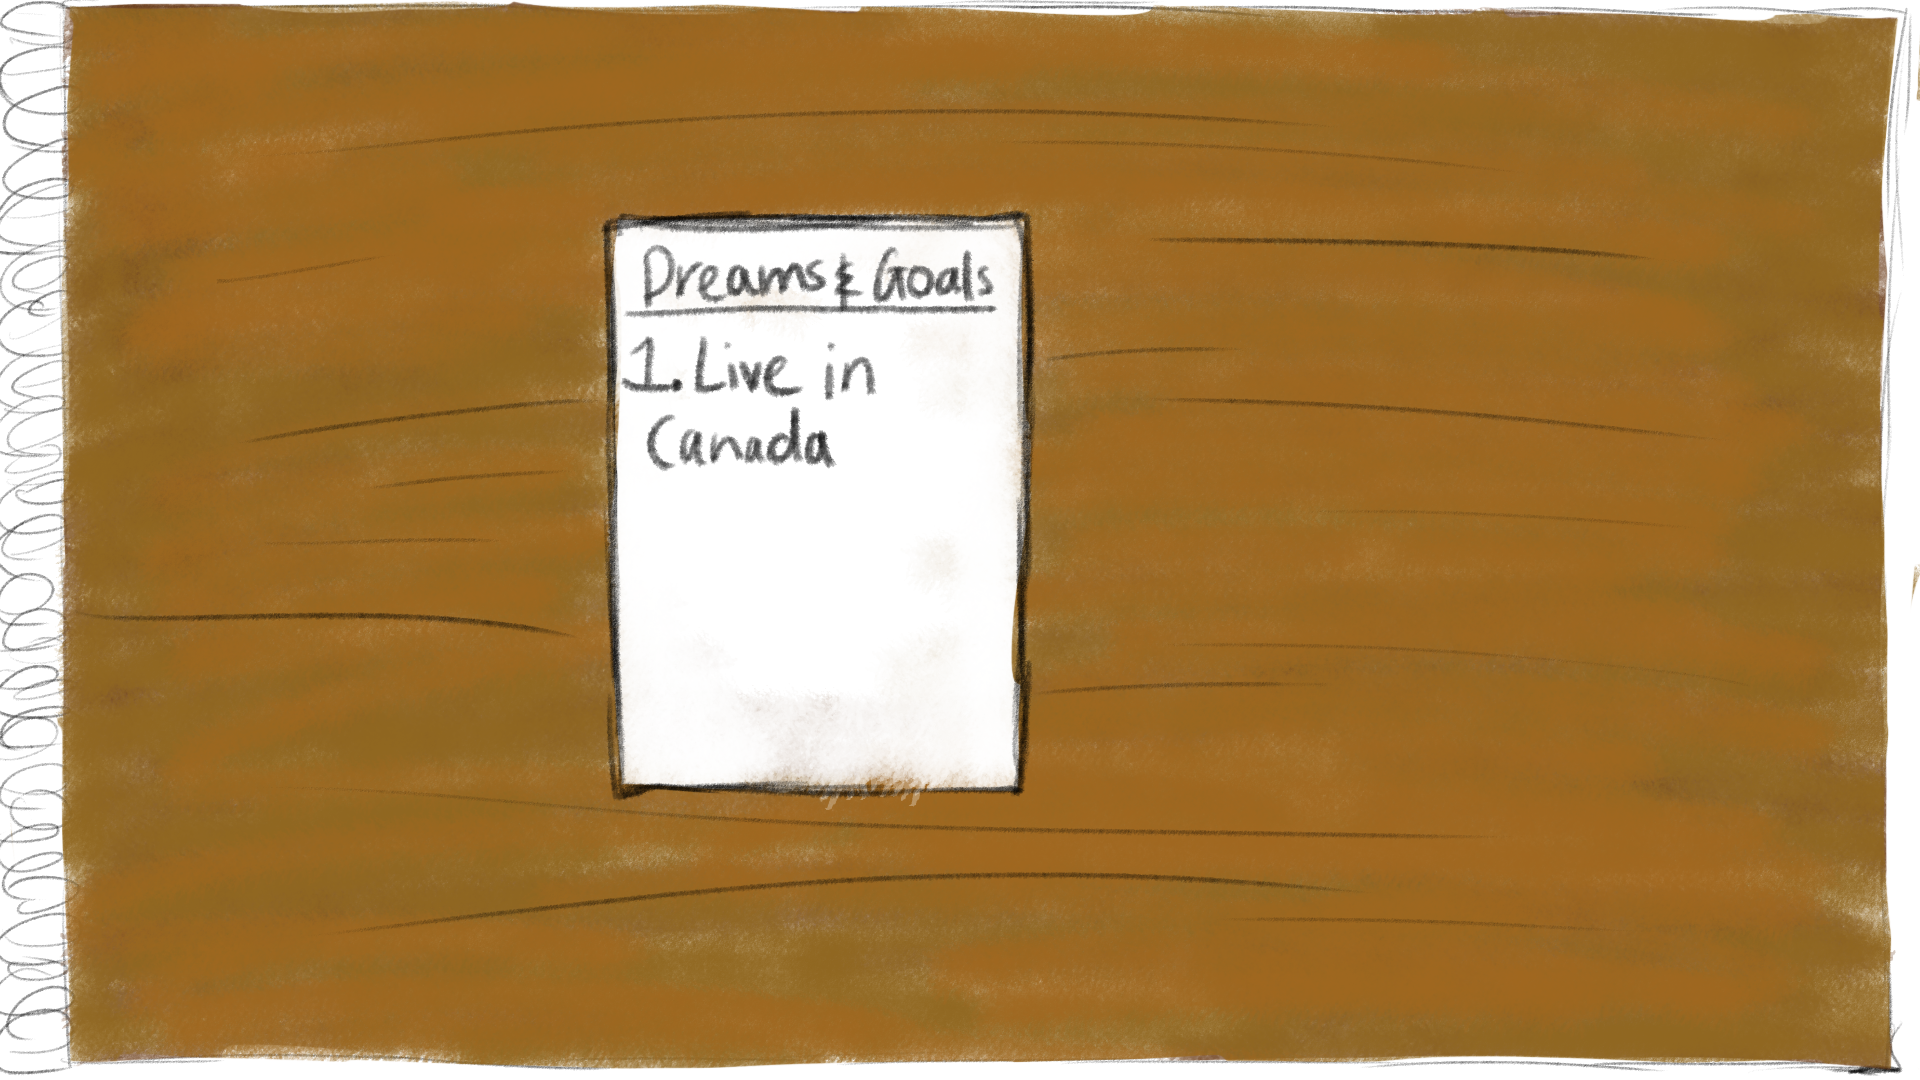 Dreams & Goals
1. Live in
Canada